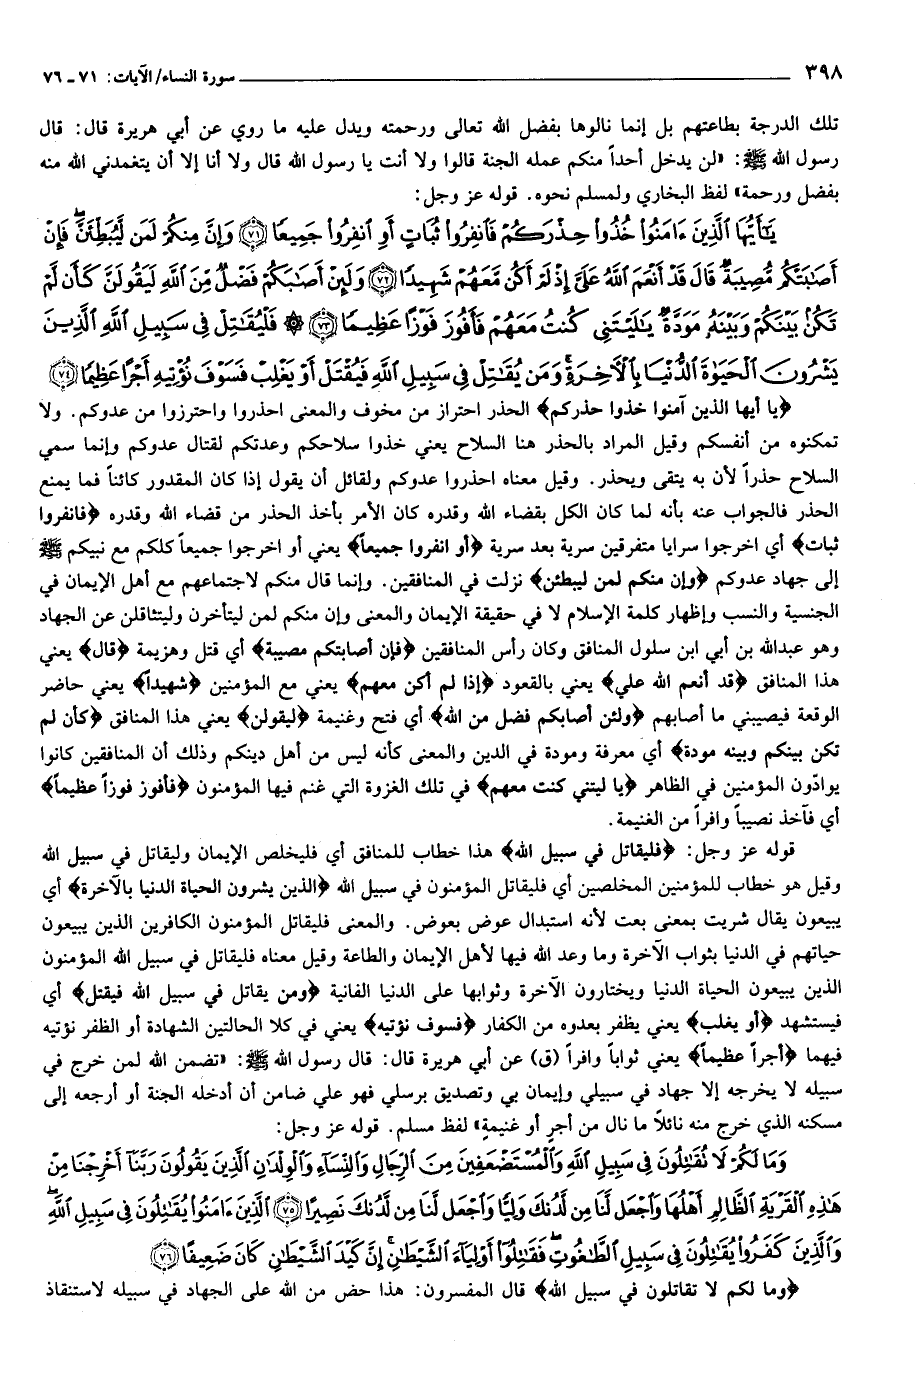 ٣٩٨ سورة النساء/ الآيات: ٧١ - ٧٦
تلك الدرجة بطاعتهم بل إنما نالوها بفضل الله تعالى ورحمته ويدل عليه ما روي عن أبي هريرة قال: قال
رسول الله ﷺ: «لن يدخل أحداً منكم عمله الجنة قالوا ولا أنت يا رسول الله قال ولا أنا إلا أن يتغمدني الله منه
بفضل ورحمة» لفظ البخاري ولمسلم نحوه. قوله عز وجل:
يَٰٓأَيُّهَا ٱلَّذِينَ ءَامَنُوا۟ خُذُوا۟ حِذْرَكُمْ فَٱنفِرُوا۟ ثُبَاتٍ أَوِ ٱنفِرُوا۟ جَمِيعًا ﴿٧١﴾ وَإِنَّ مِنكُمْ لَمَن لَّيُبَطِّئَنَّ ۖ فَإِنْ
أَصَٰبَتْكُم مُّصِيبَةٌ قَالَ قَدْ أَنْعَمَ ٱللَّهُ عَلَىَّ إِذْ لَمْ أَكُن مَّعَهُمْ شَهِيدًا ﴿٧٢﴾ وَلَئِنْ أَصَٰبَكُمْ فَضْلٌ مِّنَ ٱللَّهِ لَيَقُولَنَّ كَأَن لَّمْ
تَكُنۢ بَيْنَكُمْ وَبَيْنَهُۥ مَوَدَّةٌ يَٰلَيْتَنِى كُنتُ مَعَهُمْ فَأَفُوزَ فَوْزًا عَظِيمًا ﴿٧٣﴾ ۞ فَلْيُقَٰتِلْ فِى سَبِيلِ ٱللَّهِ ٱلَّذِينَ
يَشْرُونَ ٱلْحَيَوٰةَ ٱلدُّنْيَا بِٱلْءَاخِرَةِ ۚ وَمَن يُقَٰتِلْ فِى سَبِيلِ ٱللَّهِ فَيُقْتَلْ أَوْ يَغْلِبْ فَسَوْفَ نُؤْتِيهِ أَجْرًا عَظِيمًا ﴿٧٤﴾
﴿يا أيها الذين آمنوا خذوا حذركم﴾ الحذر احتراز من مخوف والمعنى احذروا واحترزوا من عدوكم. ولا
تمكنوه من أنفسكم وقيل المراد بالحذر هنا السلاح يعني خذوا سلاحكم وعدتكم لقتال عدوكم وإنما سمي
السلاح حذراً لأن به يتقى ويحذر. وقيل معناه احذروا عدوكم ولقائل أن يقول إذا كان المقدور كائناً فما يمنع
الحذر فالجواب عنه بأنه لما كان الكل بقضاء الله وقدره كان الأمر بأخذ الحذر من قضاء الله وقدره ﴿فانفروا
ثبات﴾ أي اخرجوا سرايا متفرقين سرية بعد سرية ﴿أو انفروا جميعاً﴾ يعني أو اخرجوا جميعاً كلكم مع نبيكم ﷺ
إلى جهاد عدوكم ﴿وإن منكم لمن ليبطئن﴾ نزلت في المنافقين. وإنما قال منكم لاجتماعهم مع أهل الإيمان في
الجنسية والنسب وإظهار كلمة الإسلام لا في حقيقة الإيمان والمعنى وإن منكم لمن ليتأخرن وليتثاقلن عن الجهاد
وهو عبدالله بن أبي ابن سلول المنافق وكان رأس المنافقين ﴿فإن أصابتكم مصيبة﴾ أي قتل وهزيمة ﴿قال﴾ يعني
هذا المنافق ﴿قد أنعم الله علي﴾ يعني بالقعود ﴿إذا لم أكن معهم﴾ يعني مع المؤمنين ﴿شهيداً﴾ يعني حاضر
الوقعة فيصيبني ما أصابهم ﴿ولئن أصابكم فضل من الله﴾ أي فتح وغنيمة ﴿ليقولن﴾ يعني هذا المنافق ﴿كأن لم
تكن بينكم وبينه مودة﴾ أي معرفة ومودة في الدين والمعنى كأنه ليس من أهل دينكم وذلك أن المنافقين كانوا
يوادّون المؤمنين في الظاهر ﴿يا ليتني كنت معهم﴾ في تلك الغزوة التي غنم فيها المؤمنون ﴿فأفوز فوزاً عظيماً﴾
أي فآخذ نصيباً وافراً من الغنيمة.
قوله عز وجل: ﴿فليقاتل في سبيل الله﴾ هذا خطاب للمنافق أي فليخلص الإيمان وليقاتل في سبيل الله
وقيل هو خطاب للمؤمنين المخلصين أي فليقاتل المؤمنون في سبيل الله ﴿الذين يشرون الحياة الدنيا بالآخرة﴾ أي
يبيعون يقال شريت بمعنى بعت لأنه استبدال عوض بعوض. والمعنى فليقاتل المؤمنون الكافرين الذين يبيعون
حياتهم في الدنيا بثواب الآخرة وما وعد الله فيها لأهل الإيمان والطاعة وقيل معناه فليقاتل في سبيل الله المؤمنون
الذين يبيعون الحياة الدنيا ويختارون الآخرة وثوابها على الدنيا الفانية ﴿ومن يقاتل في سبيل الله فيقتل﴾ أي
فيستشهد ﴿أو يغلب﴾ يعني يظفر بعدوه من الكفار ﴿فسوف نؤتيه﴾ يعني في كلا الحالتين الشهادة أو الظفر نؤتيه
فيهما ﴿أجراً عظيماً﴾ يعني ثواباً وافراً (ق) عن أبي هريرة قال: قال رسول الله ﷺ: «تضمن الله لمن خرج في
سبيله لا يخرجه إلا جهاد في سبيلي وإيمان بي وتصديق برسلي فهو علي ضامن أن أدخله الجنة أو أرجعه إلى
مسكنه الذي خرج منه نائلاً ما نال من أجرٍ أو غنيمةٍ» لفظ مسلم. قوله عز وجل:
وَمَا لَكُمْ لَا تُقَٰتِلُونَ فِى سَبِيلِ ٱللَّهِ وَٱلْمُسْتَضْعَفِينَ مِنَ ٱلرِّجَالِ وَٱلنِّسَآءِ وَٱلْوِلْدَٰنِ ٱلَّذِينَ يَقُولُونَ رَبَّنَآ أَخْرِجْنَا مِنْ
هَٰذِهِ ٱلْقَرْيَةِ ٱلظَّالِمِ أَهْلُهَا وَٱجْعَل لَّنَا مِن لَّدُنكَ وَلِيًّا وَٱجْعَل لَّنَا مِن لَّدُنكَ نَصِيرًا ﴿٧٥﴾ ٱلَّذِينَ ءَامَنُوا۟ يُقَٰتِلُونَ فِى سَبِيلِ ٱللَّهِ ۖ
وَٱلَّذِينَ كَفَرُوا۟ يُقَٰتِلُونَ فِى سَبِيلِ ٱلطَّٰغُوتِ فَقَٰتِلُوٓا۟ أَوْلِيَآءَ ٱلشَّيْطَٰنِ ۖ إِنَّ كَيْدَ ٱلشَّيْطَٰنِ كَانَ ضَعِيفًا ﴿٧٦﴾
﴿وما لكم لا تقاتلون في سبيل الله﴾ قال المفسرون: هذا حض من الله على الجهاد في سبيله لاستنقاذ